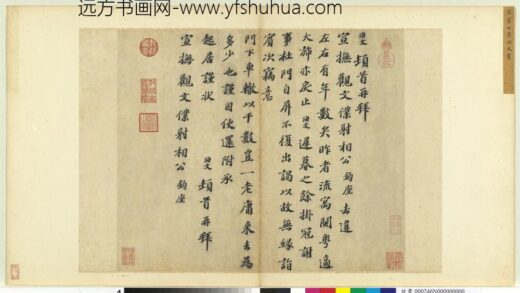 远方书画网-www.yfshuhua.com
文 頓首再拜
宣撫觀文僕射相公 鈞座 去違
左右有年數矣昨者流寓閩粤適
大旆亦戾止 文 遲暮之餘掛冠謝
事杜門自屏不復出謁以故無緣詣
賓次竊意
門下車轍以千數豈一老庸來去為
多少也謹因使還附承
起居謹狀
文 頓首再拜
宣撫觀文僕射相公 鈞座
000246N000000000